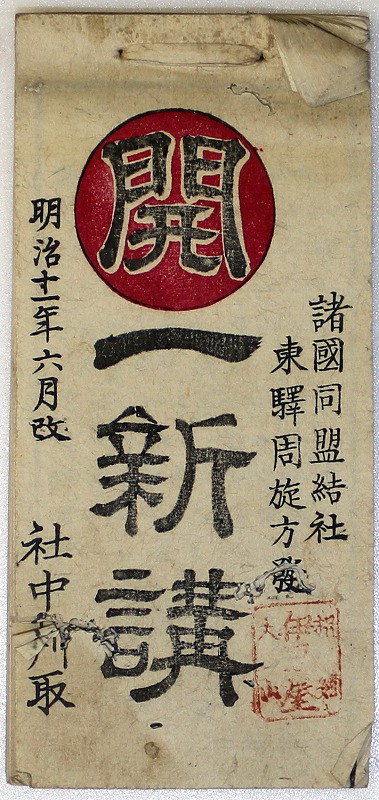 諸國同盟結社
東驛周旋方發
開
一新講
明治十一年六月改
社中 取